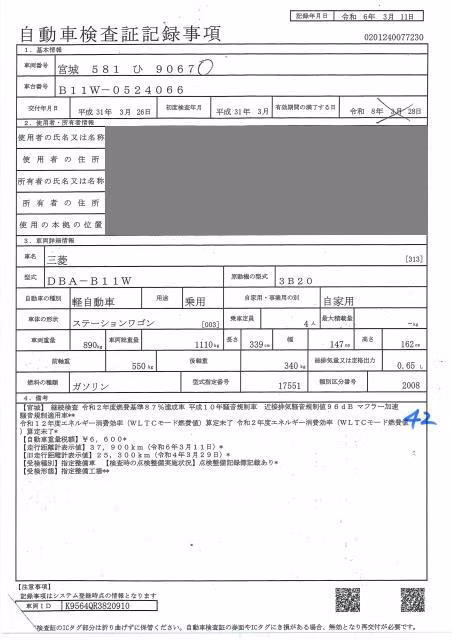 記録年月日 令和 6年 3月 11日
自動車検査証記録事項
0201240077230
1. 基本情報
車両番号 宮城 581 ひ 9067
車台番号 B11W-0524066
交付年月日 平成 31年 3月 26日 初度検査年月 平成 31年 3月 有効期間の満了する日 令和 8年 3月 28日
2. 使用者・所有者情報
使用者の氏名又は名称
使用者の住所
所有者の氏名又は名称
所有者の住所
使用の本拠の位置
3. 車両詳細情報
車名 三菱 [313]
型式 DBA-B11W 原動機の型式 3B20
自動車の種別 軽自動車 用途 乗用 自家用・事業用の別 自家用
車体の形状 ステーションワゴン [003] 乗車定員 4人 最大積載量 -kg
車両重量 890kg 車両総重量 1110kg 長さ 339cm 幅 147cm 高さ 162cm
前軸重 550kg 後軸重 340kg 総排気量又は定格出力 0.65 L
燃料の種類 ガソリン 型式指定番号 17551 類別区分番号 2008
4. 備考
【宮城】 継続検査 令和2年度燃費基準87%達成車 平成10年騒音規制車 近接排気騒音規制値96dB マフラー加速
騒音規制適用車**
令和12年度エネルギー消費効率(WLTCモード燃費値)算定未了 令和2年度エネルギー消費効率(WLTCモード燃費値
)算定未了*
42
【自動車重量税額】¥6,600*
【走行距離計表示値】37,900km(令和6年3月11日)*
【旧走行距離計表示値】25,300km(令和4年3月29日)*
【受検種別】指定整備車 【検査時の点検整備実施状況】点検整備記録簿記載あり*
【受検形態】指定整備工場**
【注意事項】
記録事項はシステム登録時点の情報となります
車両ID K9564QR3820910
検査証のICタグ部分は折り曲げずに保管ください。自動車検査証の券面やICタグにき損がある場合、無効となり再交付が必要です。